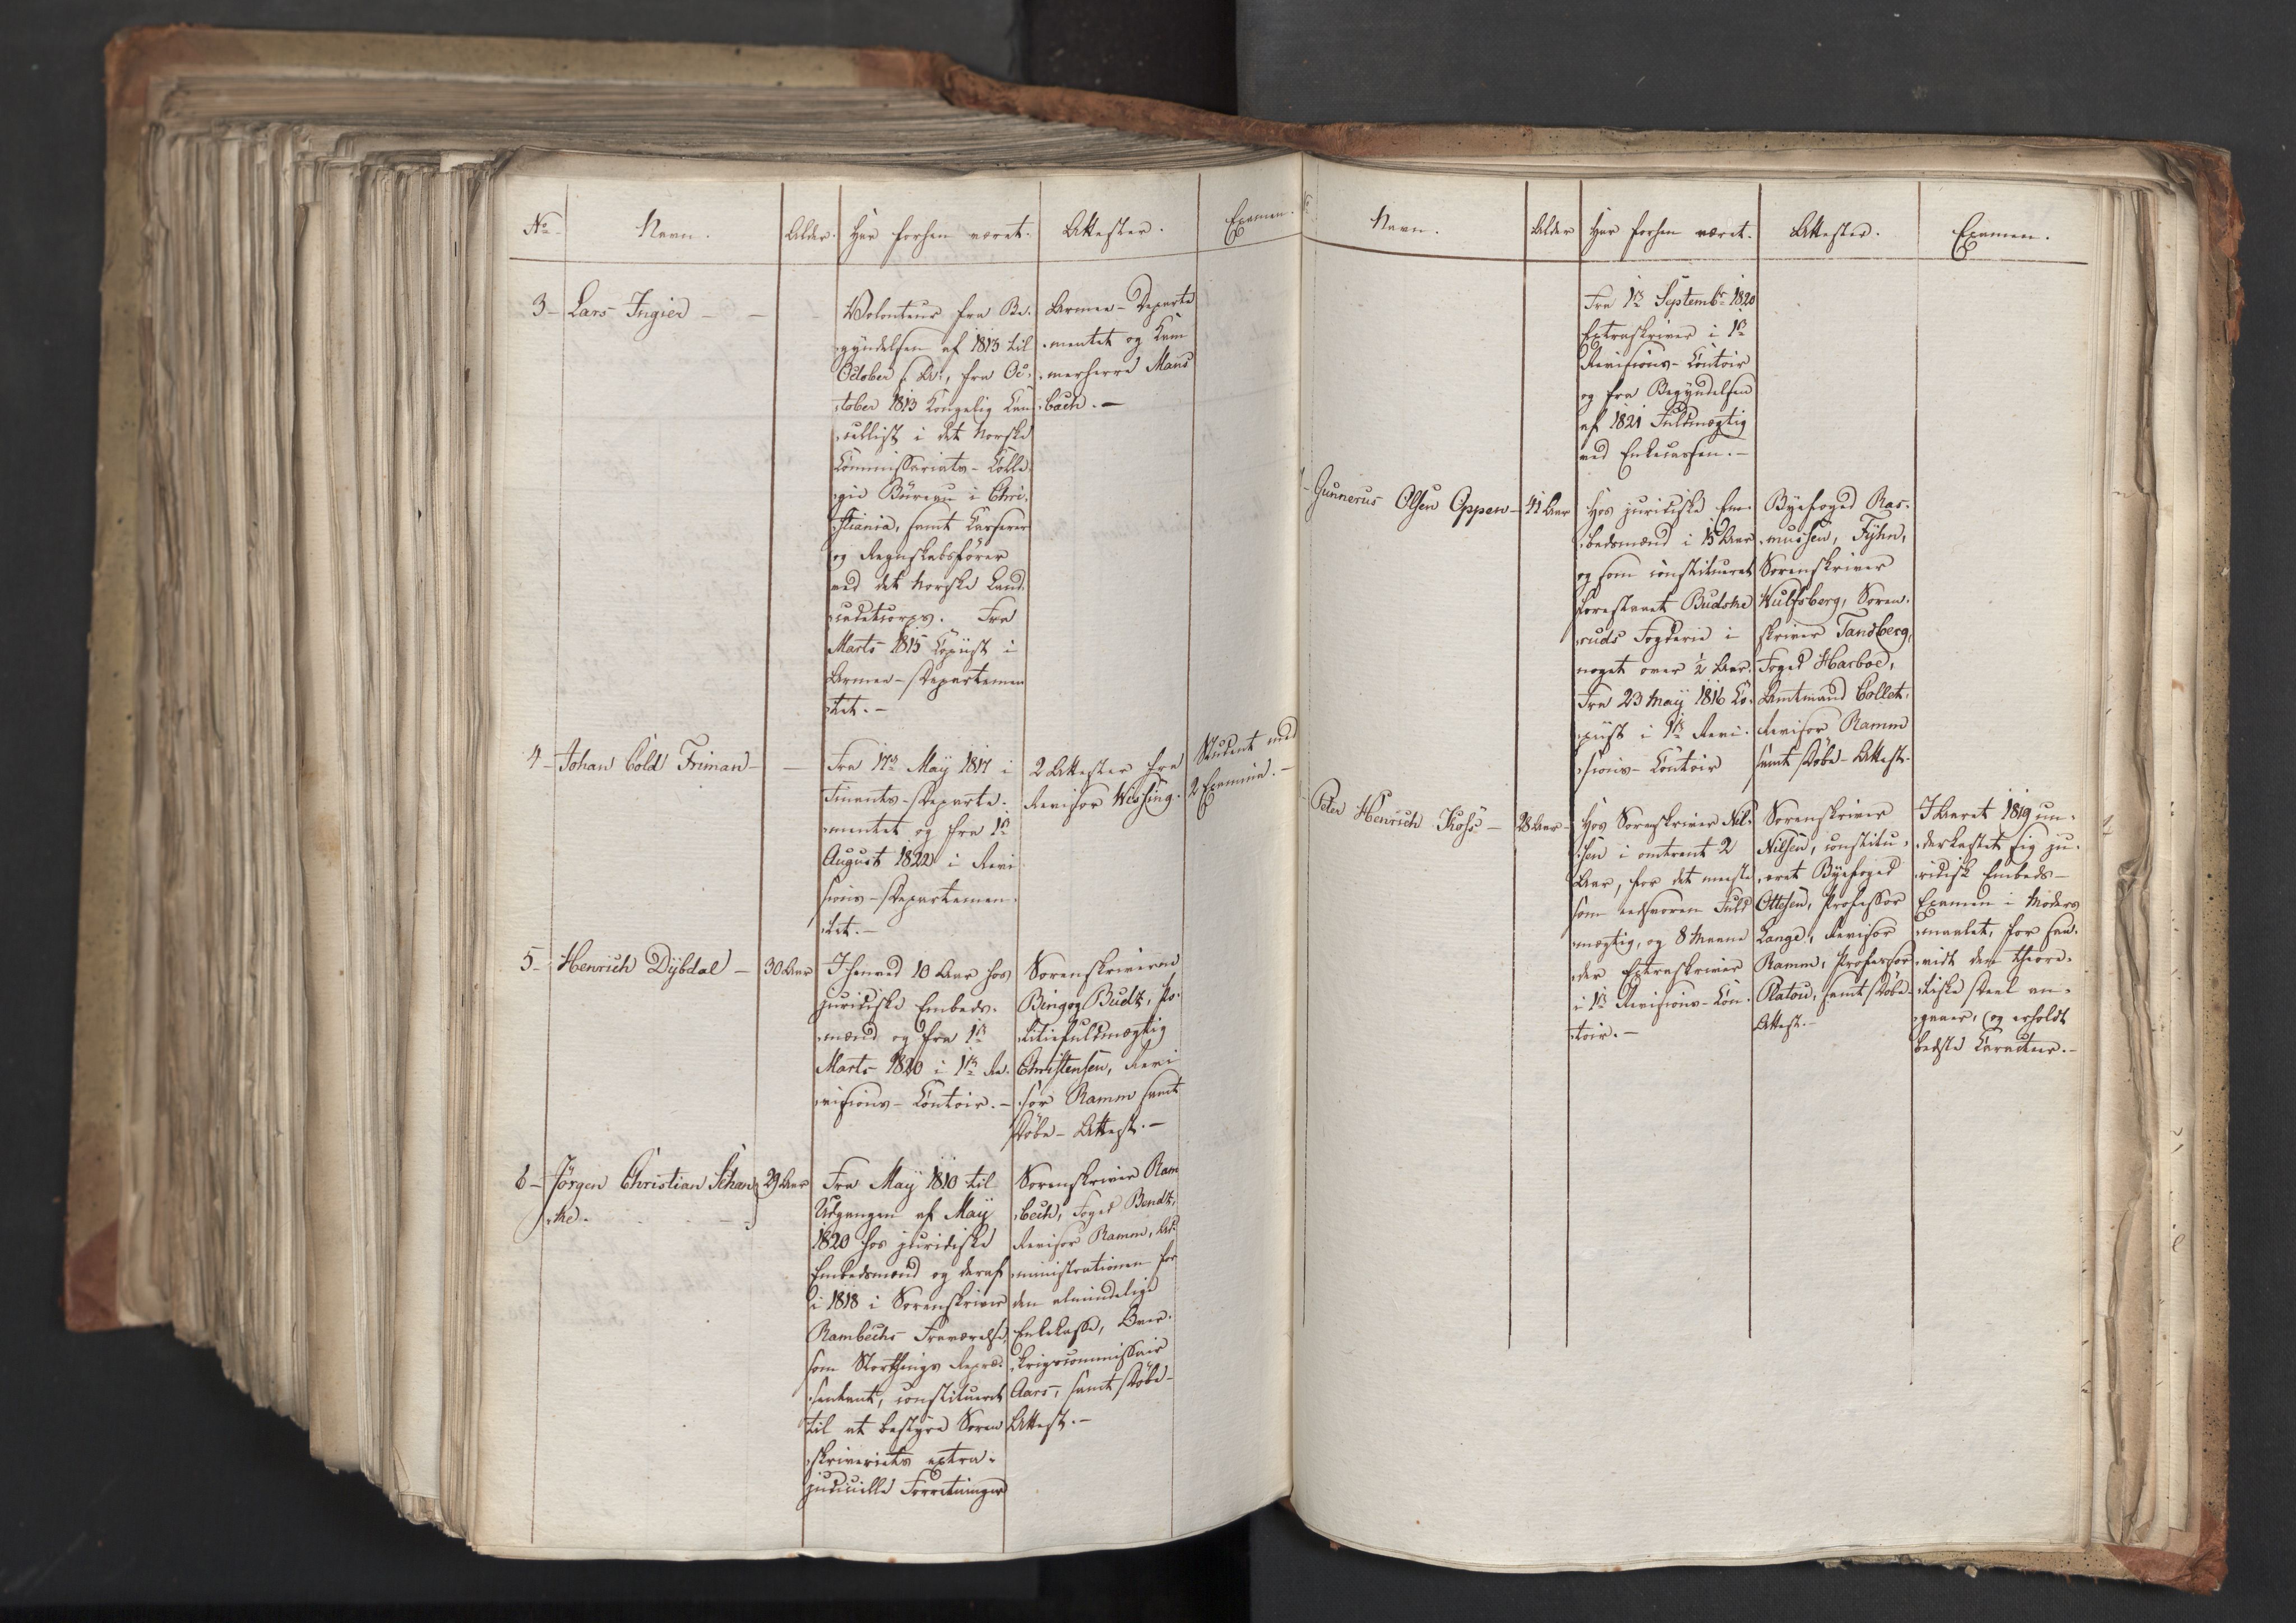 No. Navn. Alder. Har forhen været. Attester. Examen.
3 – Lars Ingier – –
Volonteur fra Be-
gyndelsen af 1813 til
October s. A., fra Oc-
tober 1813 Kongelig Can-
cellist i det Norske
Commissariats-Colle-
gie Büreau i Chri-
stiania, samt Casserer
og Regnskabsfører
ved det Norske Land-
cadetcorps. Fra
Marts 1815 Copiist i
Armee-Departemen-
tet. –
Armee-Departe-
mentet og Kam-
merherre Mans-
bach. –
4 – Johan Cold Friman – –
Fra 17de May 1817 i
Finants-Departe-
mentet og fra 1ste
August 1822 i Revi-
sions-Departemen-
tet. –
2 Attester fra
Revisor Wissing.
Student med
2 Examina. –
5 – Henrich Dÿbdal – 30 Aar
Ihenved 10 Aar hos
juridiske Embeds-
mænd og fra 1ste
Marts 1820 i 1ste Re-
visions-Contoir. –
Sorenskriverne
Bing og Budtz, Po-
litiefuldmægtig
Christensen, Revi-
sor Ramm samt
Døbe-Attest. –
6 – Jørgen Christian Schan-
cke. – 29 Aar
Fra Maÿ 1810 til
Udgangen af Maÿ
1820 hos juridiske
Embedsmænd og deraf
i 1818 i Sorenskriver
Rambechs Fraværelse,
som Storthings Repræ-
sentant, constitueret
til at bestyre Soren-
skriveriets extra-
judicielle Forretninger
Sorenskriver Ram-
bech, Foged Bendtz,
Revisor Ramm, Ad-
ministrationen for
den almindelige
Enkekasse, Over-
krigscommissair
Aars, samt Døbe-
Attest. –
Navn. Alder Har forhen været. Attester. Examen.
Fra 1ste Septembr 1820
Extraskriver i 1ste
Revisions-Contoir
og fra Begyndelsen
af 1821 Fuldmægtig
ved Enkecassen. –
Gunnerus Olsen Oppen – 41 Aar
Hos juridiske Em-
bedsmænd i 15 Aar
og som constitueret
forestaaet Budske-
ruds Fogderie i
noget over ½ Aar.
Fra 23 Maÿ 1816 Co-
piist i 1ste Revi-
sions-Contoir
Byefoged Ras-
mussen, Fÿhn,
Sorenskriver
Wulfsberg, Soren-
skriver Tandberg,
Foged Harboe,
Amtmand Collet,
Revisor Ramm
samt Døbe-Attest.
Peter Henrich Koss – 28 Aar –
Hos Sorenskriver Nil-
sen i omtrent 2
Aar, for det meeste
som eedsvoren Fuld-
mægtig, og 8 Maane-
der Extraskriver
i 1ste Revisions-Con-
toir. –
Sorenskriver
Nilsen, constitu-
eret Byefoged
Ottesen, Professor
Lange, Revisor
Ramm, Professor
Platou, samt Døbe-
Attest. –
I Aaret 1819 un-
derkastet sig ju-
ridisk Embeds-
Examen i Moders-
maalet, for saa-
vidt den theore-
tiske Deel an-
gaaer, og erholdt
bedste Caracteer. –